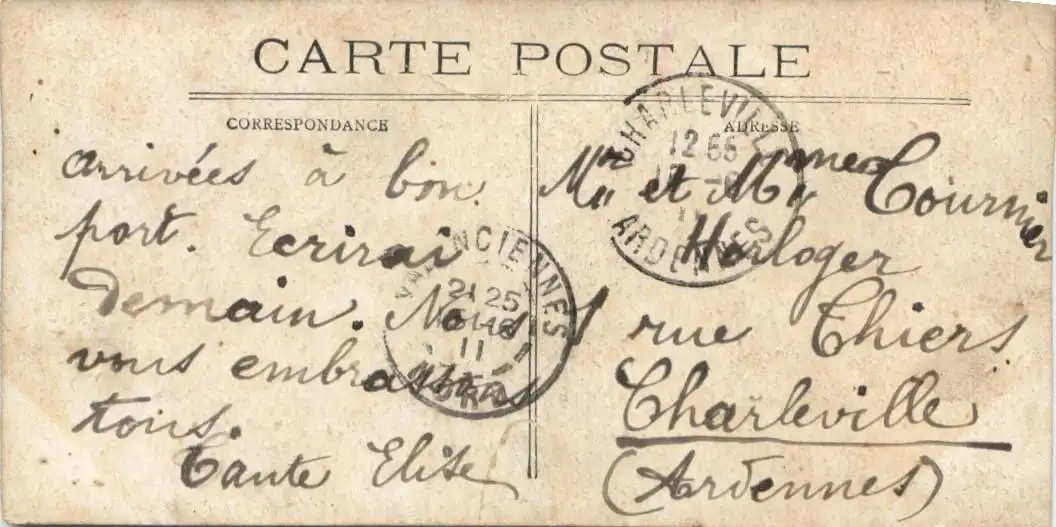 CARTE POSTALE
CORRESPONDANCE
arrivées à bon
port. Ecrirai
demain. Nous
vous embrassons
tous.
Tante Elise
ADRESSE
Mr et Mme Tournier
Horloger
rue Thiers
Charleville
(Ardennes)
CHARLEVILLE
12 55
ARDENNES
VALENCIENNES
21 25
11
NORD